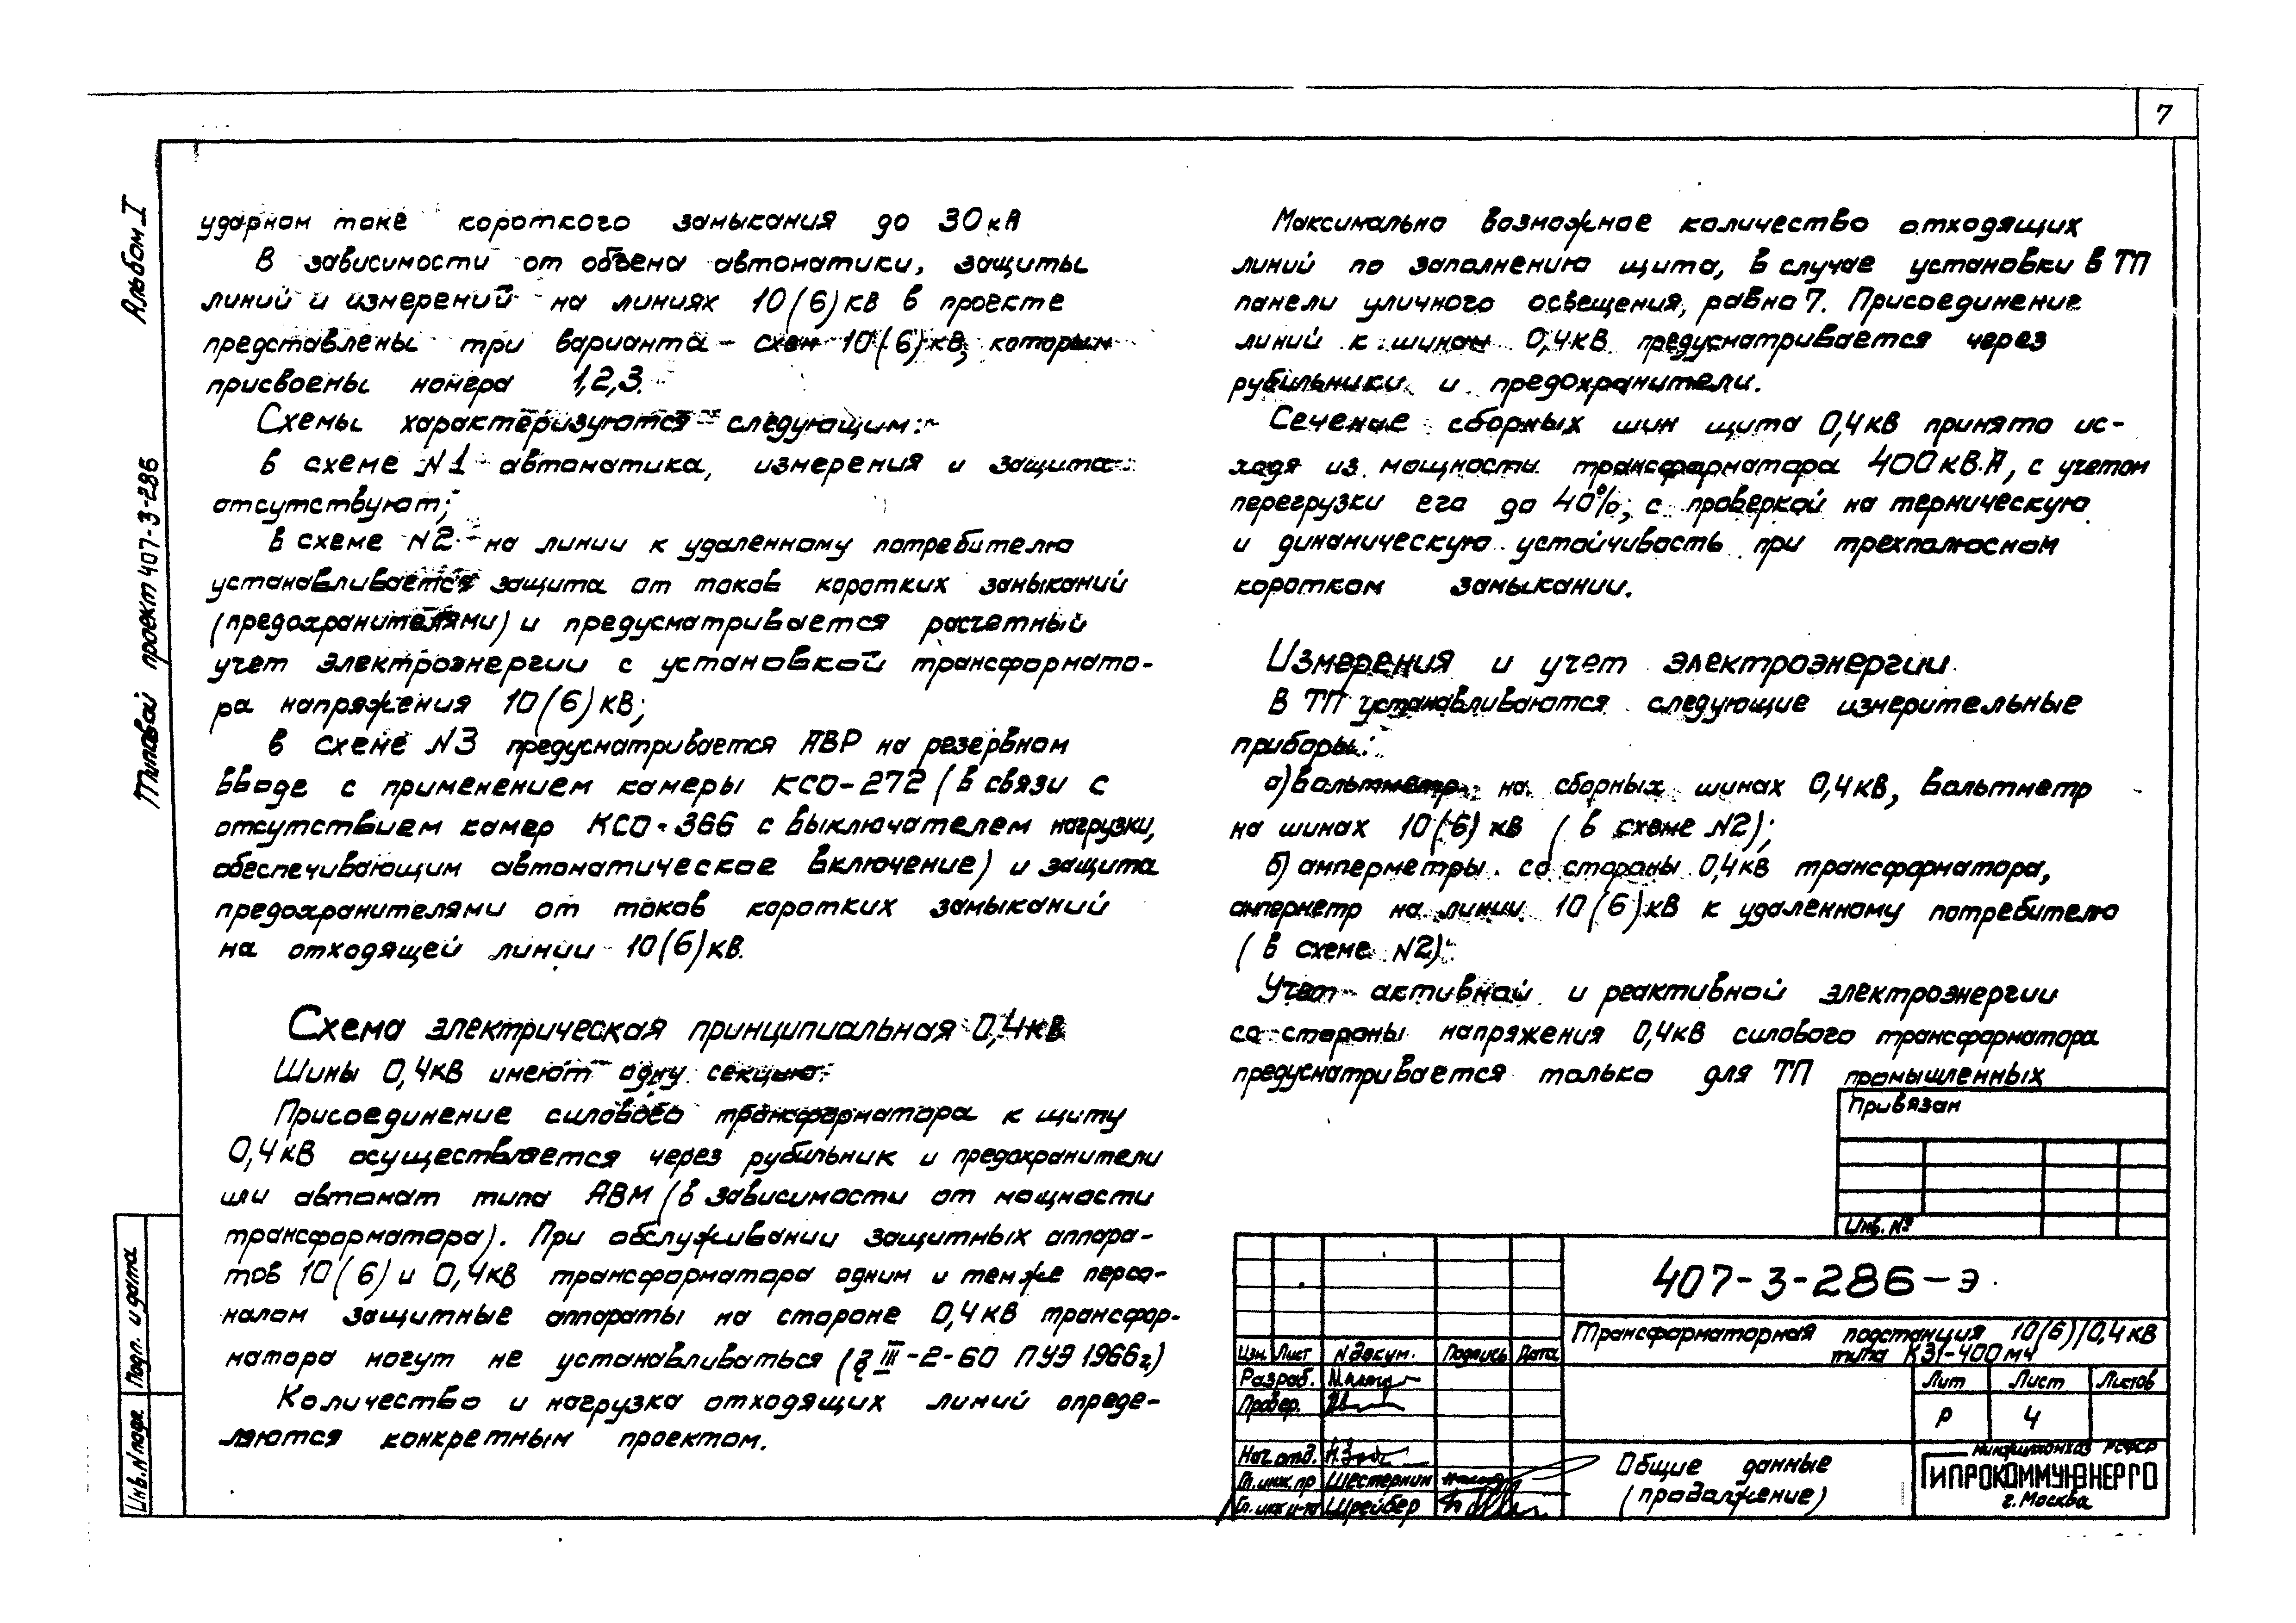 7
Альбом I
Типовой проект 407-3-286
ударном токе короткого замыкания до 30 кА
В зависимости от объема автоматики, защиты
линий и измерений на линиях 10(6) кВ в проекте
представлены три варианта схем 10(6) кВ, которым
присвоены номера 1,2,3.
Схемы характеризуются следующим:
в схеме N1 автоматика, измерения и защита
отсутствуют;
в схеме N2 на линии к удаленному потребителю
устанавливается защита от токов коротких замыканий
(предохранителями) и предусматривается расчетный
учет электроэнергии с установкой трансформато-
ра напряжения 10(6) кВ;
в схеме N3 предусматривается АВР на резервном
вводе с применением камеры КСО-272 (в связи с
отсутствием камер КСО-366 с выключателем нагрузки,
обеспечивающим автоматическое включение) и защита
предохранителями от токов коротких замыканий
на отходящей линии 10(6) кВ.
Схема электрическая принципиальная 0,4кВ
Шины 0,4кВ имеют одну секцию.
Присоединение силового трансформатора к щиту
0,4кВ осуществляется через рубильник и предохранители
или автомат типа АВМ (в зависимости от мощности
трансформатора). При обслуживании защитных аппара-
тов 10(6) и 0,4кВ трансформатора одним и тем же персо-
налом защитные аппараты на стороне 0,4кВ трансфор-
матора могут не устанавливаться (§ III-2-60 ПУЭ 1966г.)
Количество и нагрузка отходящих линий опреде-
ляются конкретным проектом.
Максимально возможное количество отходящих
линий по заполнению щита, в случае установки в ТП
панели уличного освещения, равно 7. Присоединение
линий к шинам 0,4кВ предусматривается через
рубильники и предохранители.
Сечение сборных шин щита 0,4кВ принято ис-
ходя из мощности трансформатора 400кВ.А, с учетом
перегрузки его до 40%, с проверкой на термическую
и динамическую устойчивость при трехполюсном
коротком замыкании.
Измерения и учет электроэнергии
В ТП устанавливаются следующие измерительные
приборы:
а) вольтметр на сборных шинах 0,4кВ, вольтметр
на шинах 10(6) кВ (в схеме N2);
б) амперметры со стороны 0,4кВ трансформатора,
амперметр на линии 10(6) кВ к удаленному потребителю
(в схеме N2).
Учет активной и реактивной электроэнергии
со стороны напряжения 0,4кВ силового трансформатора
предусматривается только для ТП промышленных
Привязан
Инв. №
407-3-286-Э
Трансформаторная подстанция 10(6)/0,4кВ
типа К31-400м4
Изм. Лист N докум. Подпись Дата
Разраб.
Провер.
Нач. отд.
Гл. инж. пр Шестернин
Гл. инж. и-та Шрейбер
Лит Лист Листов
Р 4
Общие данные
(продолжение)
Минжилкомхоз РСФСР
ГИПРОКОММУНЭНЕРГО
г. Москва
Подп. и дата
Инв. N подл.